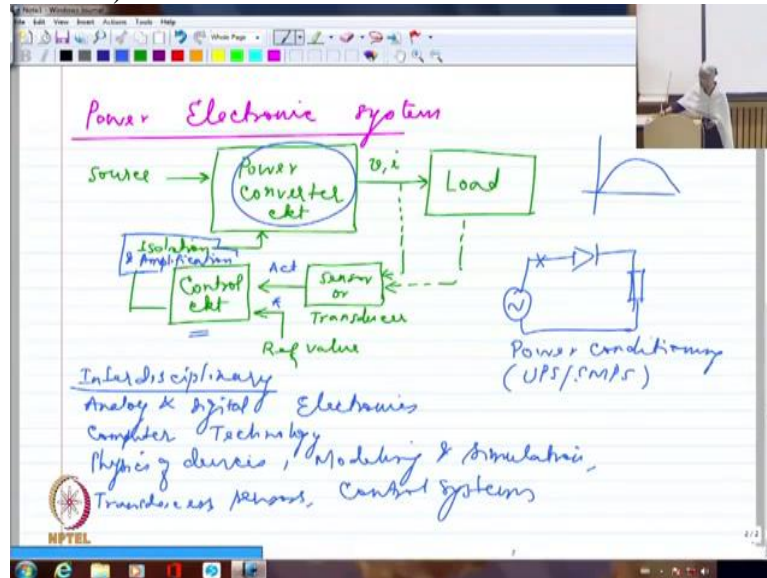 Note1 - Windows Journal
File Edit View Insert Actions Tools Help
Whole Page
Power Electronic system
Source
Power
Converter
ckt
v, i
Load
Isolation
& Amplification
Control
ckt
Act
Sensor
or
Transducer
*
Ref value
Power Conditioning
(UPS/SMPS)
Interdisciplinary
Analog & digital Electronics
Computer Technology
Physics of devices, Modeling & Simulation,
Transducers sensors, Control systems
NPTEL
2/2